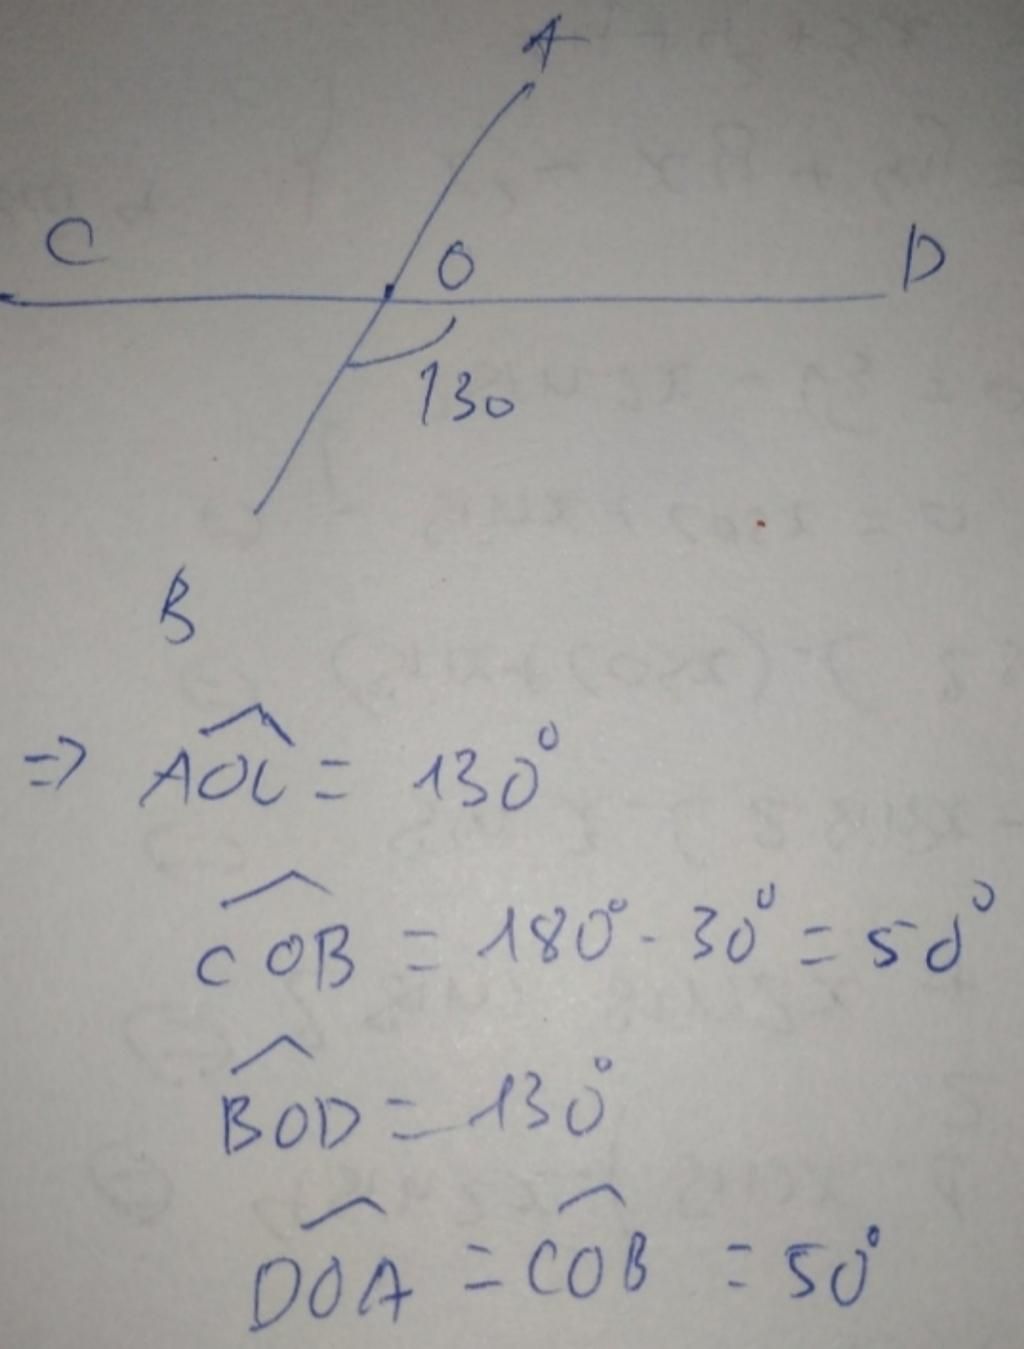 A
C O D
130
B
=> AOC = 130°
COB = 180° - 30° = 50°
BOD = 130°
DOA = COB = 50°